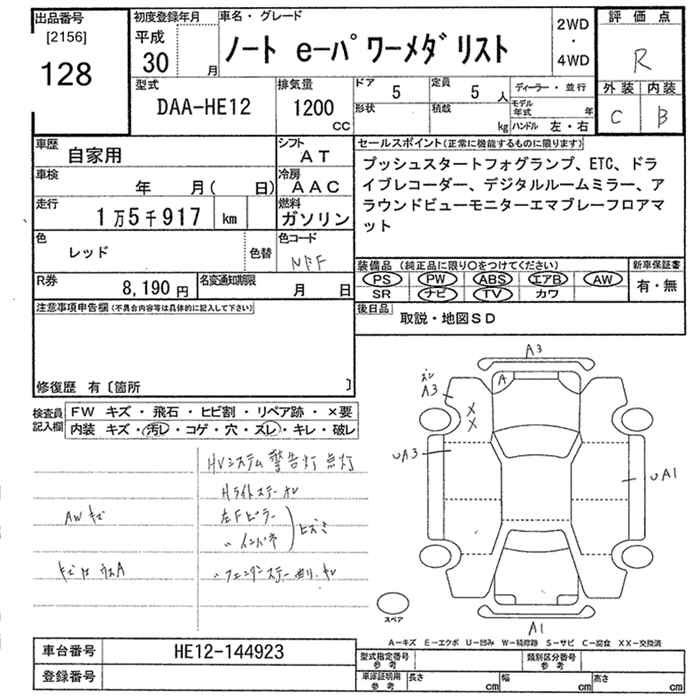 出品番号
[2156]
128
初度登録年月
平成
30 月
車名・グレード
ノート e−パワーメダリスト
2WD
・
4WD
評価点
R
外装 内装
C B
型式
DAA-HE12
排気量
1200
CC
ドア 5
定員 5 人
形状
積載 kg
ディーラー・並行
モデル年式 年
ハンドル 左・右
車歴
自家用
シフト
AT
車検
年 月( 日)
冷房
AAC
走行
1万5千917 km
燃料
ガソリン
色
レッド
色替
色コード
NPF
R券
8,190円
名変通知期限
月 日
セールスポイント(正常に機能するものに限ります)
プッシュスタートフォグランプ、ETC、ドラ
イブレコーダー、デジタルルームミラー、ア
ラウンドビューモニターエマブレーフロアマ
ット
装備品 (純正品に限り○をつけてください)
PS PW ABS エアB AW
SR ナビ TV カワ
新車保証書
有・無
後日品
取説・地図SD
注意事項申告欄(不具合内容等は具体的に記入して下さい)
修復歴 有〔箇所 〕
検査員
記入欄
FW キズ・飛石・ヒビ割・リペア跡・×要
内装 キズ・汚レ・コゲ・穴・スレ・キレ・破レ
HVシステム 警告灯 点灯
Hライトステー キレ
AW キズ
左Fピラー
〃 インパネ
〃フェンダステー 曲リ、キレ
A3
A
A3
X
X
UA3
UA1
A1
スペア
A−キズ E−エクボ U−凹み W−補修跡 S−サビ C−腐食 XX−交換済
車台番号
HE12-144923
登録番号
型式指定番号
参考
類別区分番号
参考
車庫証明用
参考
長さ cm
幅 cm
高さ cm